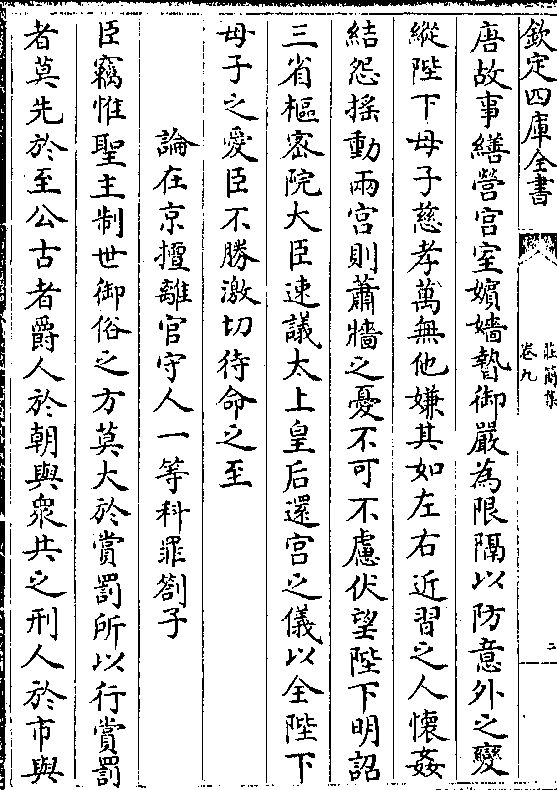 欽定四庫全書
莊簡集
卷九
二
唐故事繕營宮室嬪嬙暬御嚴為限隔以防意外之變
縱陛下母子慈孝萬無他嫌其如左右近習之人懷姦
結怨揺動兩宮則蕭牆之憂不可不慮伏望陛下明詔
三省樞密院大臣速議太上皇后還宮之儀以全陛下
母子之愛臣不勝激切待命之至
論在京擅離官守人一等科罪劄子
臣竊惟聖主制世御俗之方莫大於賞罰所以行賞罰
者莫先於至公古者爵人於朝與衆共之刑人於市與